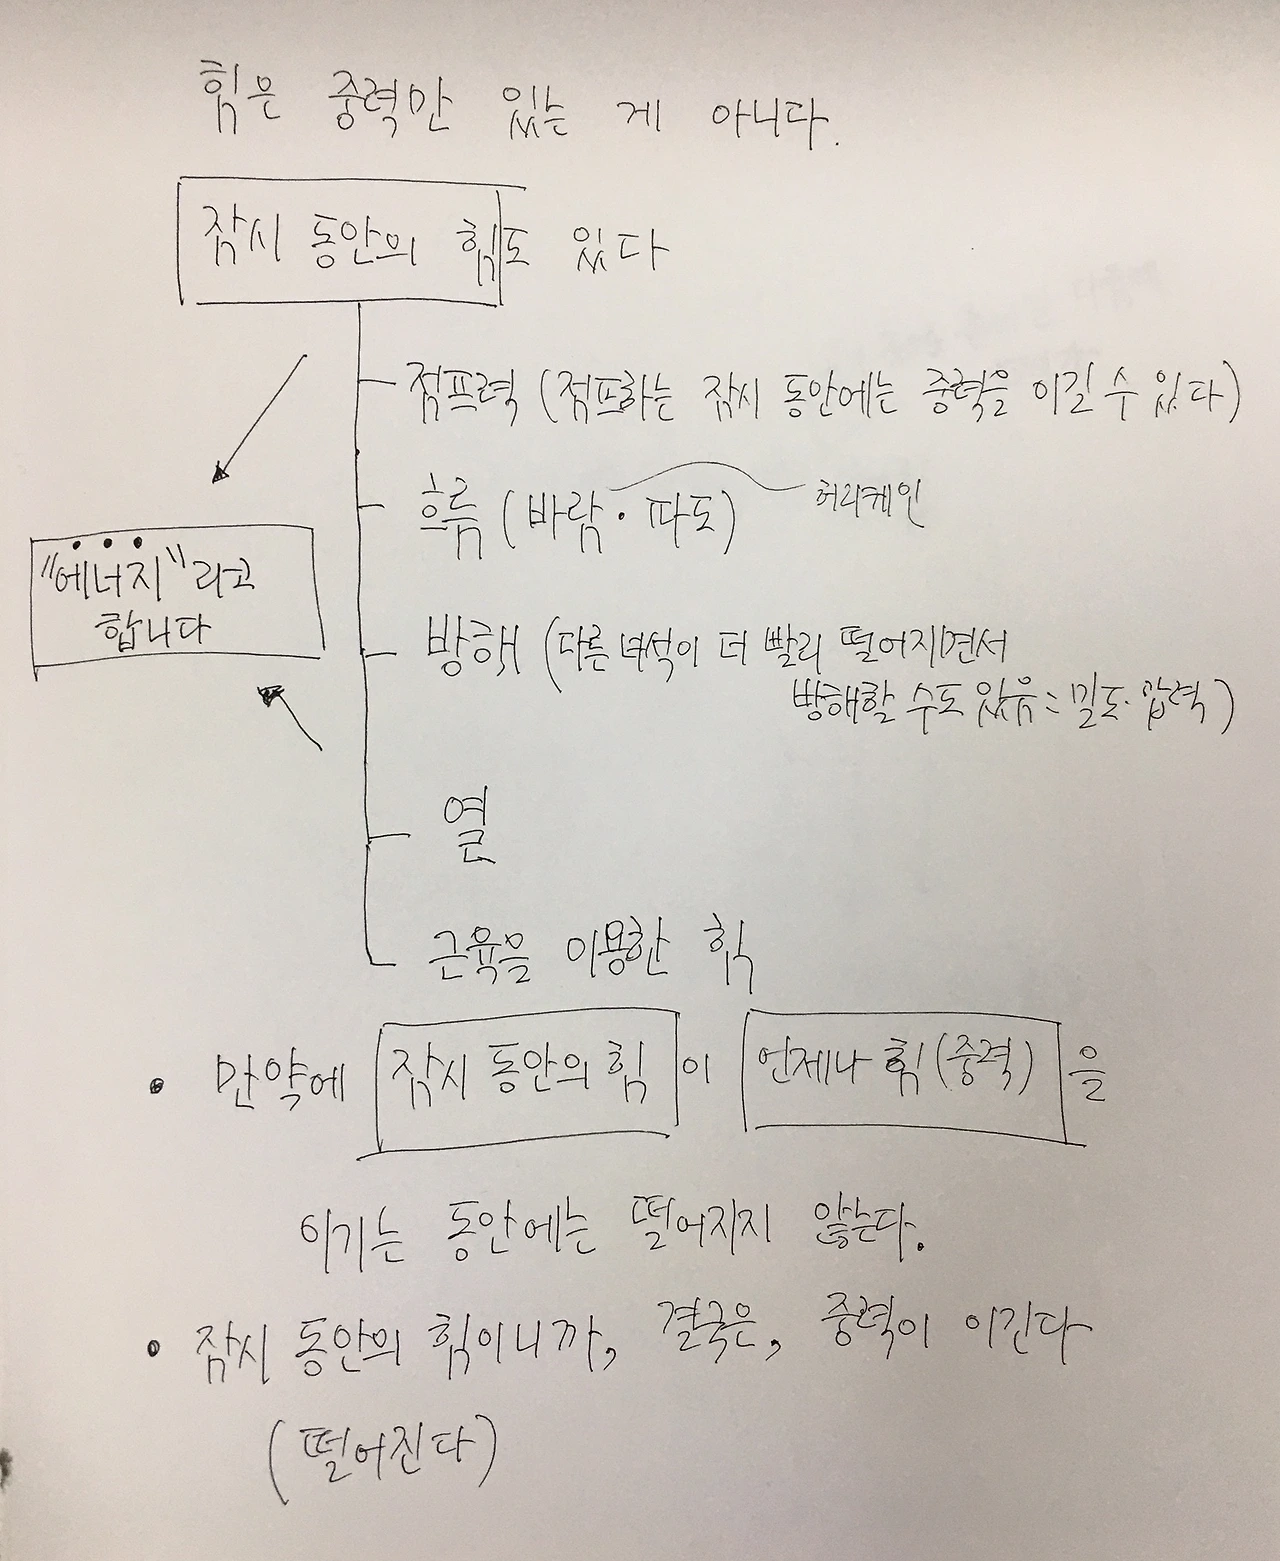 힘은 중력만 있는 게 아니다.
잠시 동안의 힘도 있다
점프력 (점프하는 잠시 동안에는 중력을 이길 수 있다)
흐름 (바람·파도) 허리케인
"에너지"라고
합니다
방해 (다른 녀석이 더 빨리 떨어지면서
방해할 수도 있음 = 밀도·압력)
열
근육을 이용한 힘
• 만약에 잠시 동안의 힘이 언제나 힘(중력)을
이기는 동안에는 떨어지지 않는다.
• 잠시 동안의 힘이니까, 결국은, 중력이 이긴다
(떨어진다)